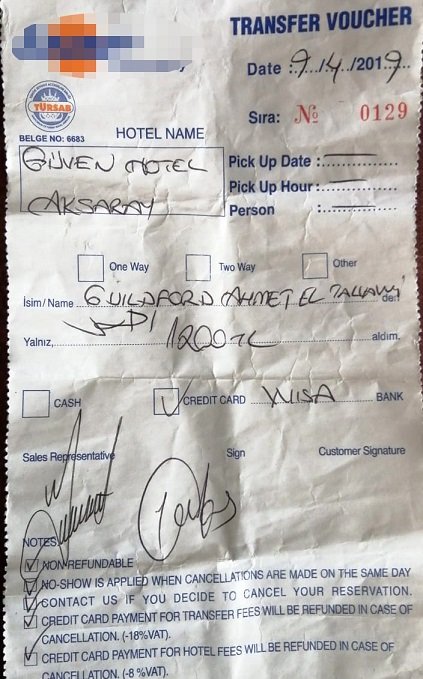 TRANSFER VOUCHER
Date : 9./.4./2019
TÜRSAB
Sıra: № 0129
BELGE NO: 6683
HOTEL NAME
GÜVEN HOTEL
AKSARAY
Pick Up Date :
Pick Up Hour :
Person :
One Way
Two Way
Other
İsim/Name GUILDFORD AHMET EL de
Yalnız, 1200 TL aldım.
CASH
CREDIT CARD WISA BANK
Sales Representative
Sign
Customer Signature
NOTES
NON-REFUNDABLE
NO-SHOW IS APPLIED WHEN CANCELLATIONS ARE MADE ON THE SAME DAY
CONTACT US IF YOU DECIDE TO CANCEL YOUR RESERVATION.
CREDIT CARD PAYMENT FOR TRANSFER FEES WILL BE REFUNDED IN CASE OF
CANCELLATION. (-18%VAT).
CREDIT CARD PAYMENT FOR HOTEL FEES WILL BE REFUNDED IN CASE OF
CANCELLATION. (-8 %VAT).